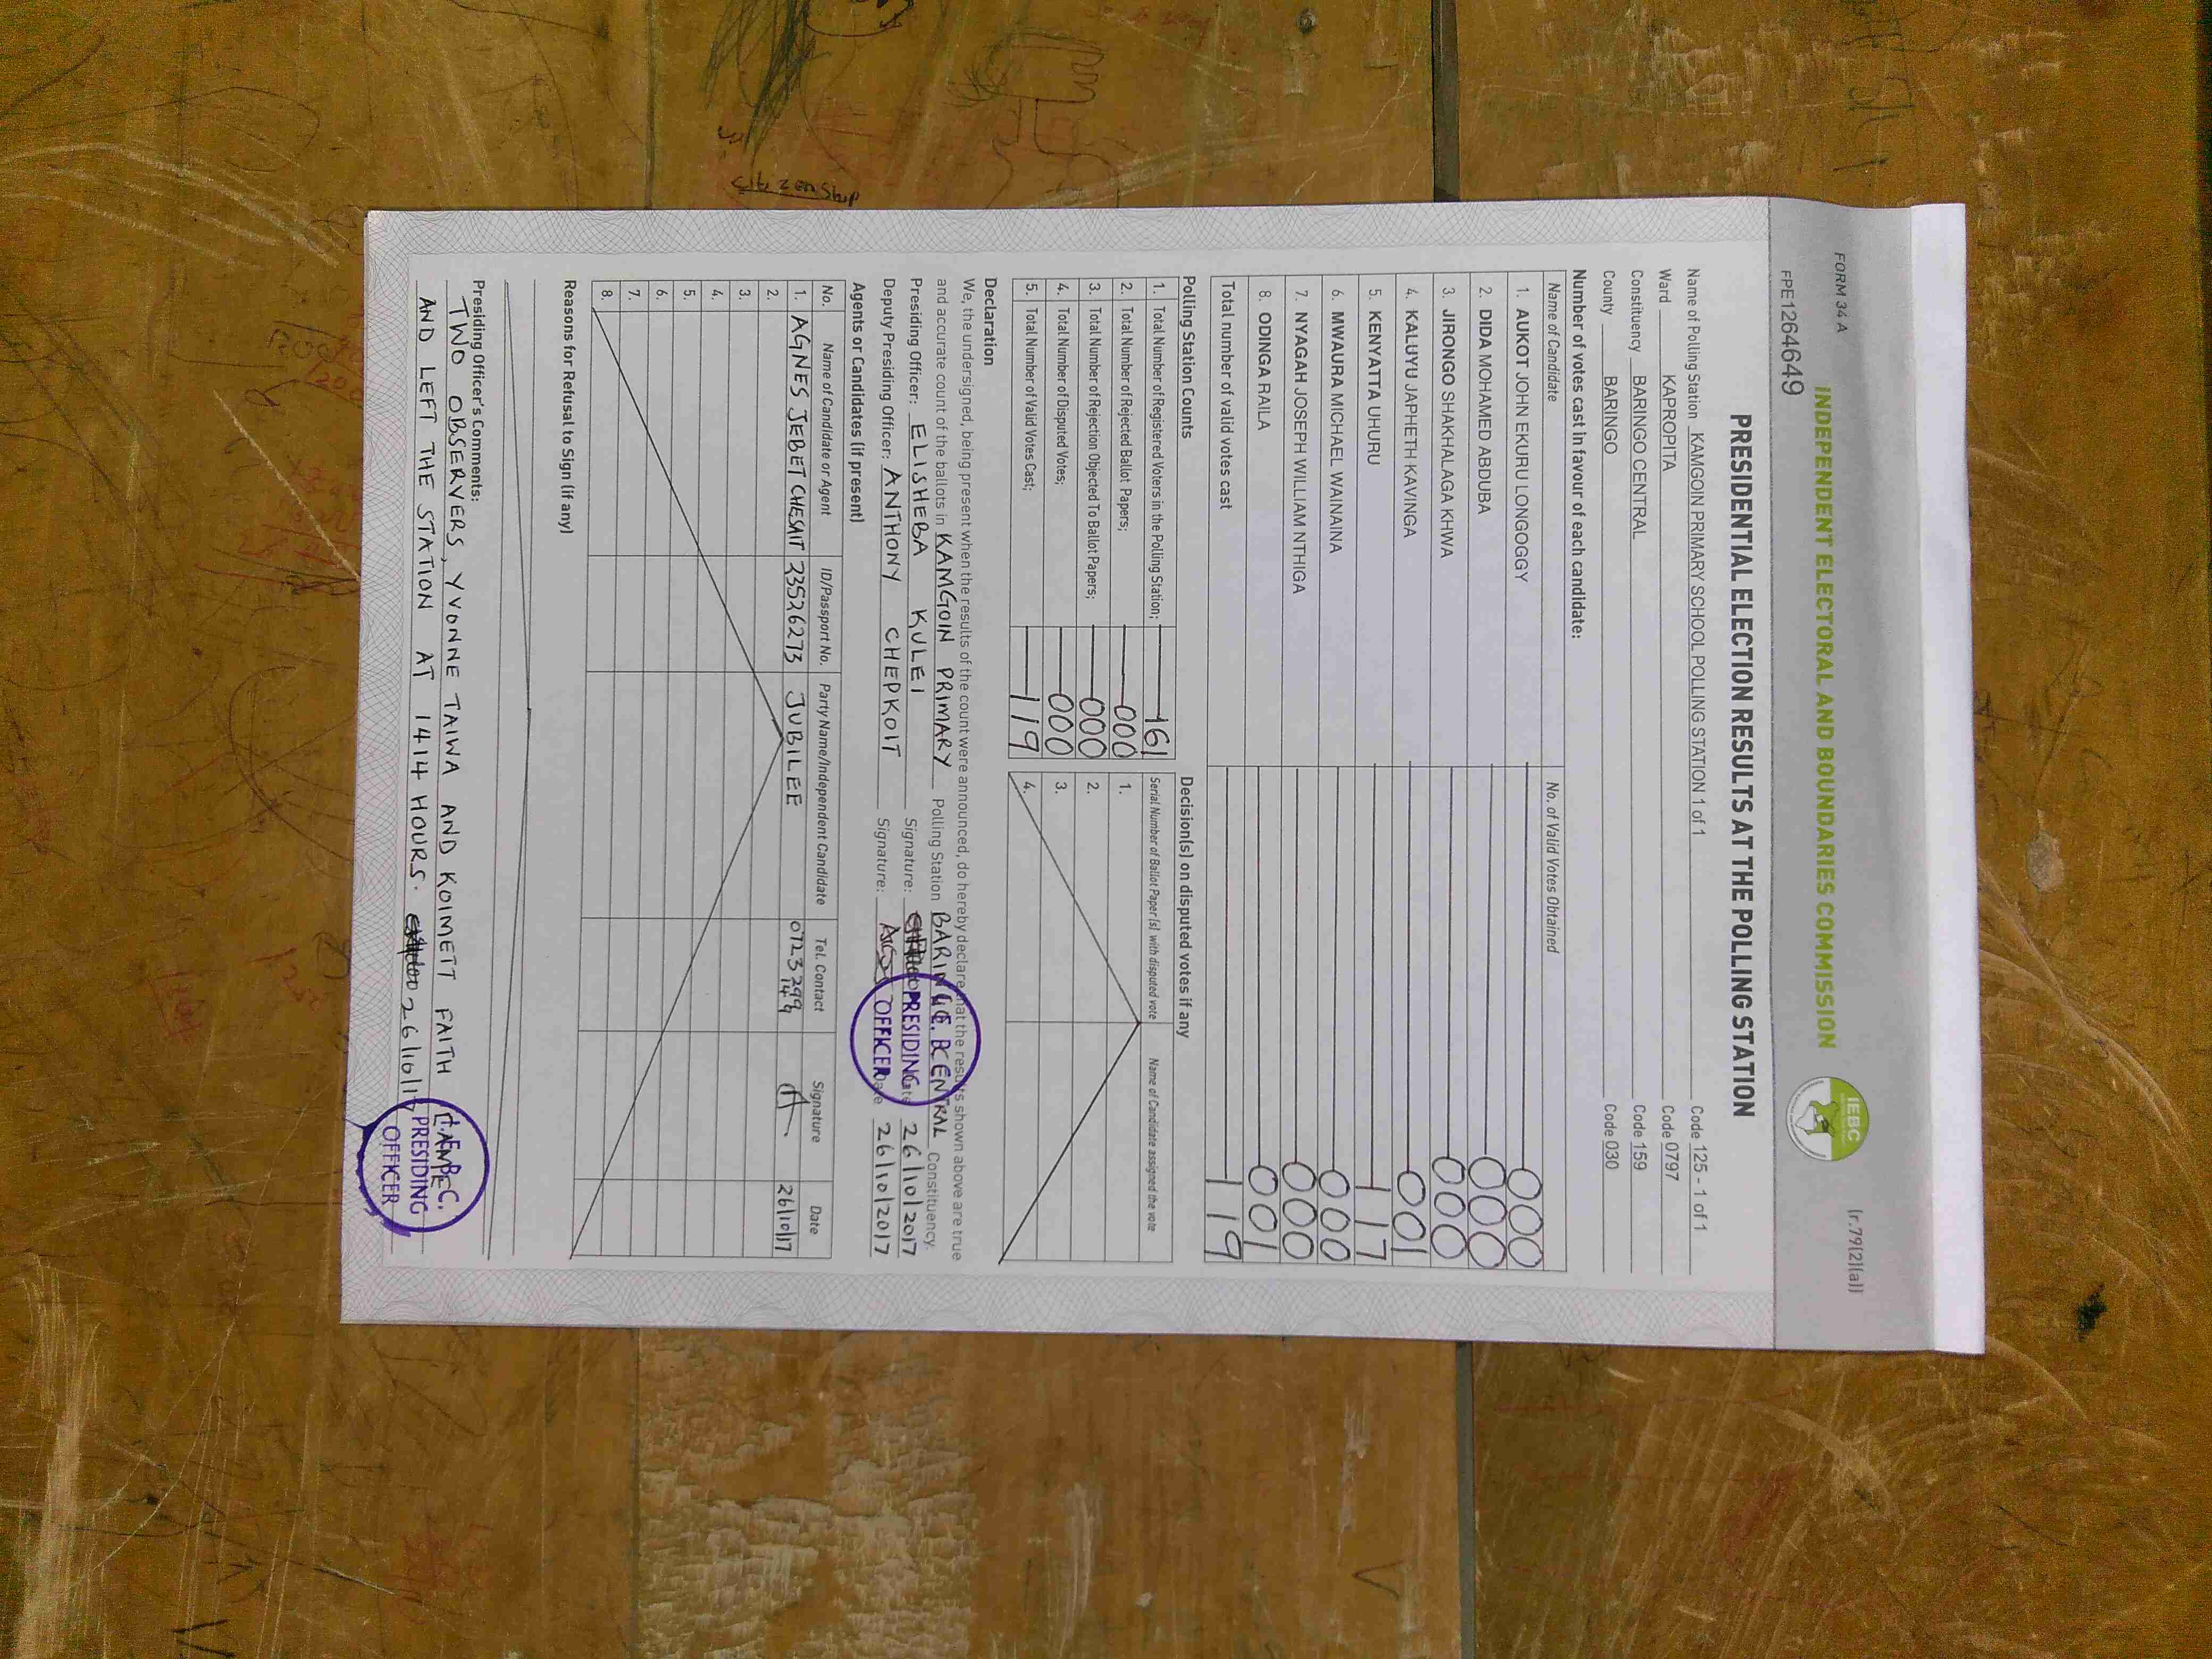 FORM 34 A
(r.79(2)(a))
INDEPENDENT ELECTORAL AND BOUNDARIES COMMISSION
IEBC
FPE1264649
PRESIDENTIAL ELECTION RESULTS AT THE POLLING STATION
Name of Polling Station KAMGOIN PRIMARY SCHOOL POLLING STATION 1 of 1 Code 125 - 1 of 1
Ward KAPROPITA Code 0797
Constituency BARINGO CENTRAL Code 159
County BARINGO Code 030
Number of votes cast in favour of each candidate:
Name of Candidate No. of Valid Votes Obtained
1. AUKOT JOHN EKURU LONGOGGY 000
2. DIDA MOHAMED ABDUBA 000
3. JIRONGO SHAKHALAGA KHWA 000
4. KALUYU JAPHETH KAVINGA 001
5. KENYATTA UHURU 117
6. MWAURA MICHAEL WAINAINA 000
7. NYAGAH JOSEPH WILLIAM NTHIGA 000
8. ODINGA RAILA 001
Total number of valid votes cast 119
Polling Station Counts
1. Total Number of Registered Voters in the Polling Station; 161
2. Total Number of Rejected Ballot Papers; 000
3. Total Number of Rejection Objected To Ballot Papers; 000
4. Total Number of Disputed Votes; 000
5. Total Number of Valid Votes Cast; 119
Decision(s) on disputed votes if any
Serial Number of Ballot Paper (s) with disputed vote Name of Candidate assigned the vote
1.
2.
3.
4.
Declaration
We, the undersigned, being present when the results of the count were announced, do hereby declare that the results shown above are true
and accurate count of the ballots in KAMGOIN PRIMARY Polling Station BARINGO CENTRAL Constituency.
Presiding Officer: ELISHEBA KULEI Signature: Date 26/10/2017
Deputy Presiding Officer: ANTHONY CHEPKOIT Signature: Date 26/10/2017
PRESIDING
OFFICER
Agents or Candidates (if present)
No. Name of Candidate or Agent ID/Passport No. Party Name/Independent Candidate Tel. Contact Signature Date
1. AGNES JEBET CHESAIT 23526273 JUBILEE 0723299149 26/10/17
2.
3.
4.
5.
6.
7.
8.
Reasons for Refusal to Sign (if any)
Presiding Officer's Comments:
TWO OBSERVERS, YVONNE TAIWA AND KOIMETT FAITH
AND LEFT THE STATION AT 1414 HOURS. 26/10/17
PRESIDING
OFFICER
citizenship